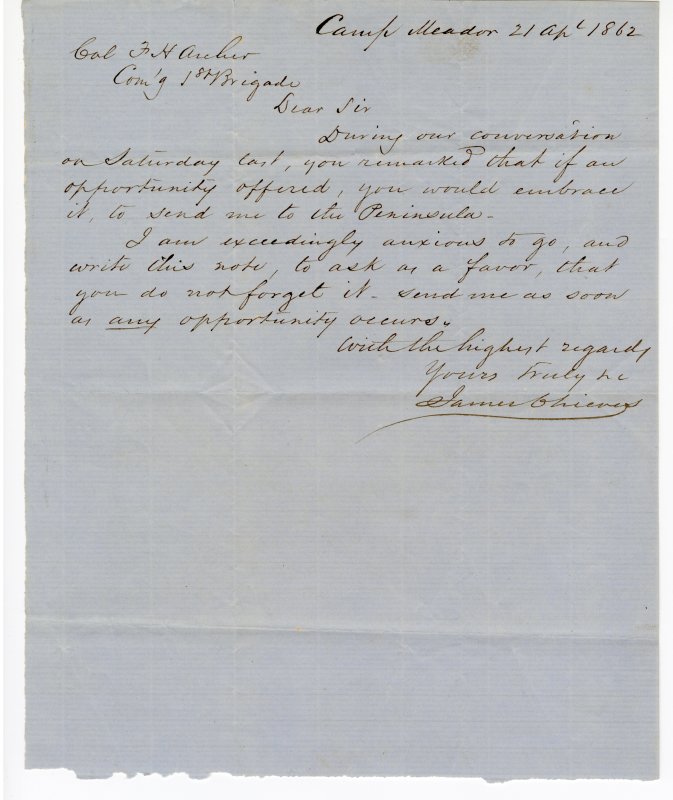 Camp Meador 21 Apl 1862
Col F H Archer
Com'g 1st Brigade
Dear Sir
During our conversation
on Saturday last, you remarked that if an
opportunity offered, you would embrace
it, to send me to the Peninsula -
I am exceedingly anxious to go, and
write this note, to ask as a favor, that
you do not forget it - send me as soon
as any opportunity occurs.
With the highest regards
Yours truly &c
James Chieves